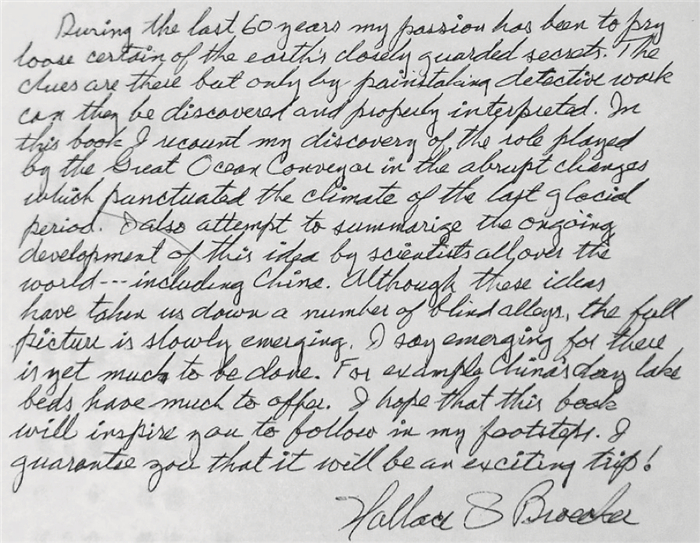 During the last 60 years my passion has been to pry
loose certain of the earth's closely guarded secrets. The
clues are there but only by painstaking detective work
can they be discovered and properly interpreted. In
this book I recount my discovery of the role played
by the Great Ocean Conveyor in the abrupt changes
which punctuated the climate of the last glacial
period. I also attempt to summarize the ongoing
development of this idea by scientists all over the
world---including China. Although these ideas
have taken us down a number of blind alleys, the full
picture is slowly emerging. I say emerging for there
is yet much to be done. For example China's dry lake
beds have much to offer. I hope that this book
will inspire you to follow in my footsteps. I
guarantee you that it will be an exciting trip!
Wallace S Broecker